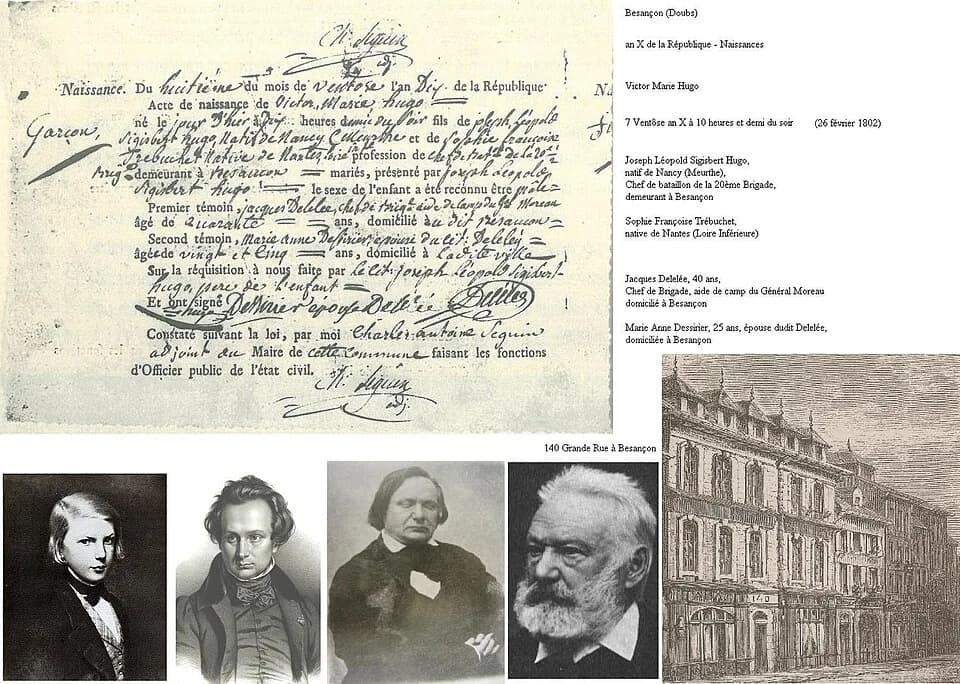 Ch. Seguin
adj.
Naissance. Du huitième du mois de ventose l'an Dix de la République
Acte de naissance de Victor, Marie hugo =
Garçon,
né le jour d'hier à Dix heures et demie du soir fils de joseph Léopold
Sigisbert hugo, Natif de Nancy (Meurthe) et de Sophie françoise
Trebuchet Native de Nantes, profession de chef de de la 20e
Brig. demeurant à Besançon = mariés, présenté par Joseph Léopold
Sigisbert hugo = le sexe de l'enfant a été reconnu être mâle =
Premier témoin, jacques Delelée, chef de Brig. aide de camp du gl. Moreau
âgé de quarante = ans, domicilié au dit Besançon =
Second témoin, Marie anne Dessirier épouse du cit. Delelée =
âgée de vingt et cinq = ans, domicilié à la dite ville
Sur la réquisition à nous faite par le cit. joseph Léopold Sigisbert
hugo, pere de l'enfant =
Et ont signé Dessirier épouse Delelée Delelée
hugo
Constaté suivant la loi, par moi Charles antoine Seguin
adjoint au Maire de cette Commune faisant les fonctions
d'Officier public de l'état civil.
Ch. Seguin
adj.
Besançon (Doubs)
an X de la République - Naissances
Victor Marie Hugo
7 Ventôse an X à 10 heures et demi du soir (26 février 1802)
Joseph Léopold Sigisbert Hugo,
natif de Nancy (Meurthe),
Chef de bataillon de la 20ème Brigade,
demeurant à Besançon
Sophie Françoise Trébuchet,
native de Nantes (Loire Inférieure)
Jacques Delelée, 40 ans,
Chef de Brigade, aide de camp du Général Moreau
domicilié à Besançon
Marie Anne Dessirier, 25 ans, épouse dudit Delelée,
domiciliée à Besançon
140 Grande Rue à Besançon
140